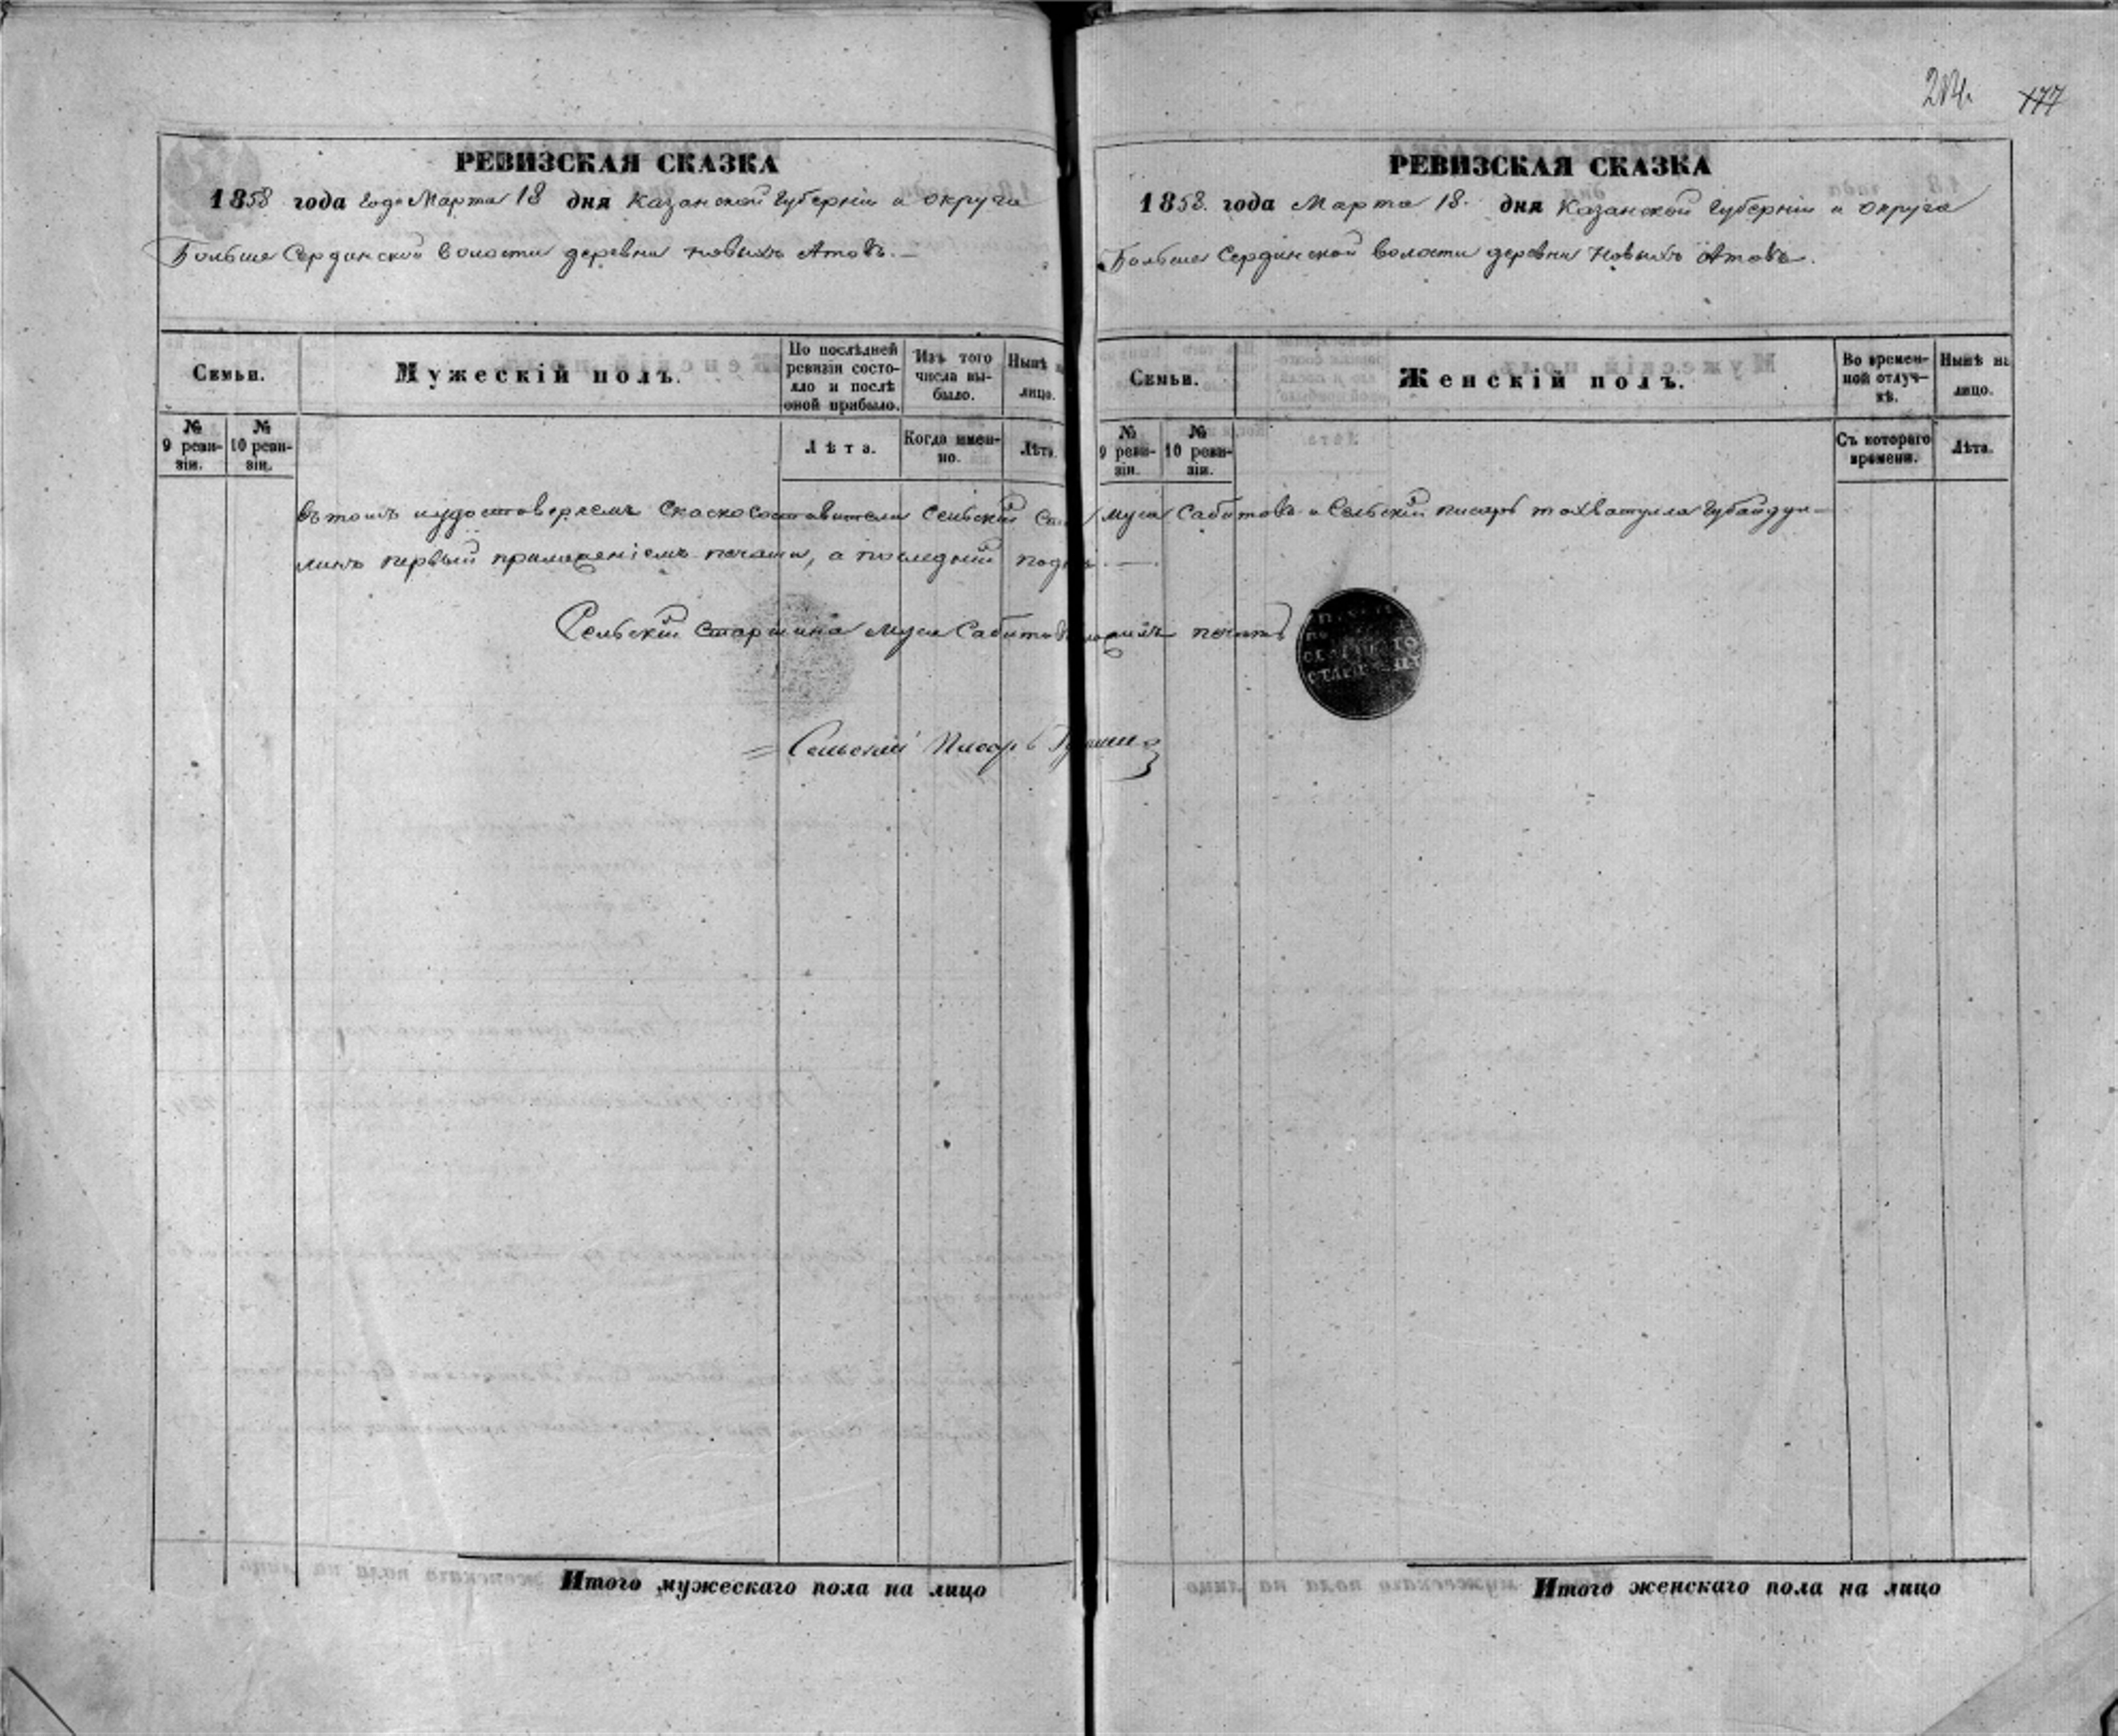 214. 177
РЕВИЗСКАЯ СКАЗКА
1858 года года Марта 18 дня Казанской Губерніи и округа
Больше Сердинской волости деревни Новыхъ Атовъ. —
Семьи.
Мужескій полъ.
По послѣдней ревизіи состояло и послѣ оной прибыло.
Изъ того числа выбыло.
Нынѣ лицо.
№ 9 ревизіи.
№ 10 ревизіи.
Лѣта.
Когда именно.
Лѣта
РЕВИЗСКАЯ СКАЗКА
1858. года Марта 18. дня Казанской Губерніи и округа
Больше Сердинской волости деревни Новыхъ Атовъ.
Семьи.
Женскій полъ.
Во временной отлучкѣ.
Нынѣ на лицо.
№ 9 ревизіи.
№ 10 ревизіи.
Съ котораго времени.
Лѣта.
Въ томъ и удостоверяемъ Скаскосоставители Сельскій Муса Сабитовъ и Сельскій писарь Губайдул-
линъ первый приложеніемъ печати, а последній
Сельскій Старшина Муса Сабитовъ печать
СЕЛЬСКАГО
СТАРШИНЫ
Сельскій Писарь
Итого мужескаго пола на лицо
Итого женскаго пола на лицо